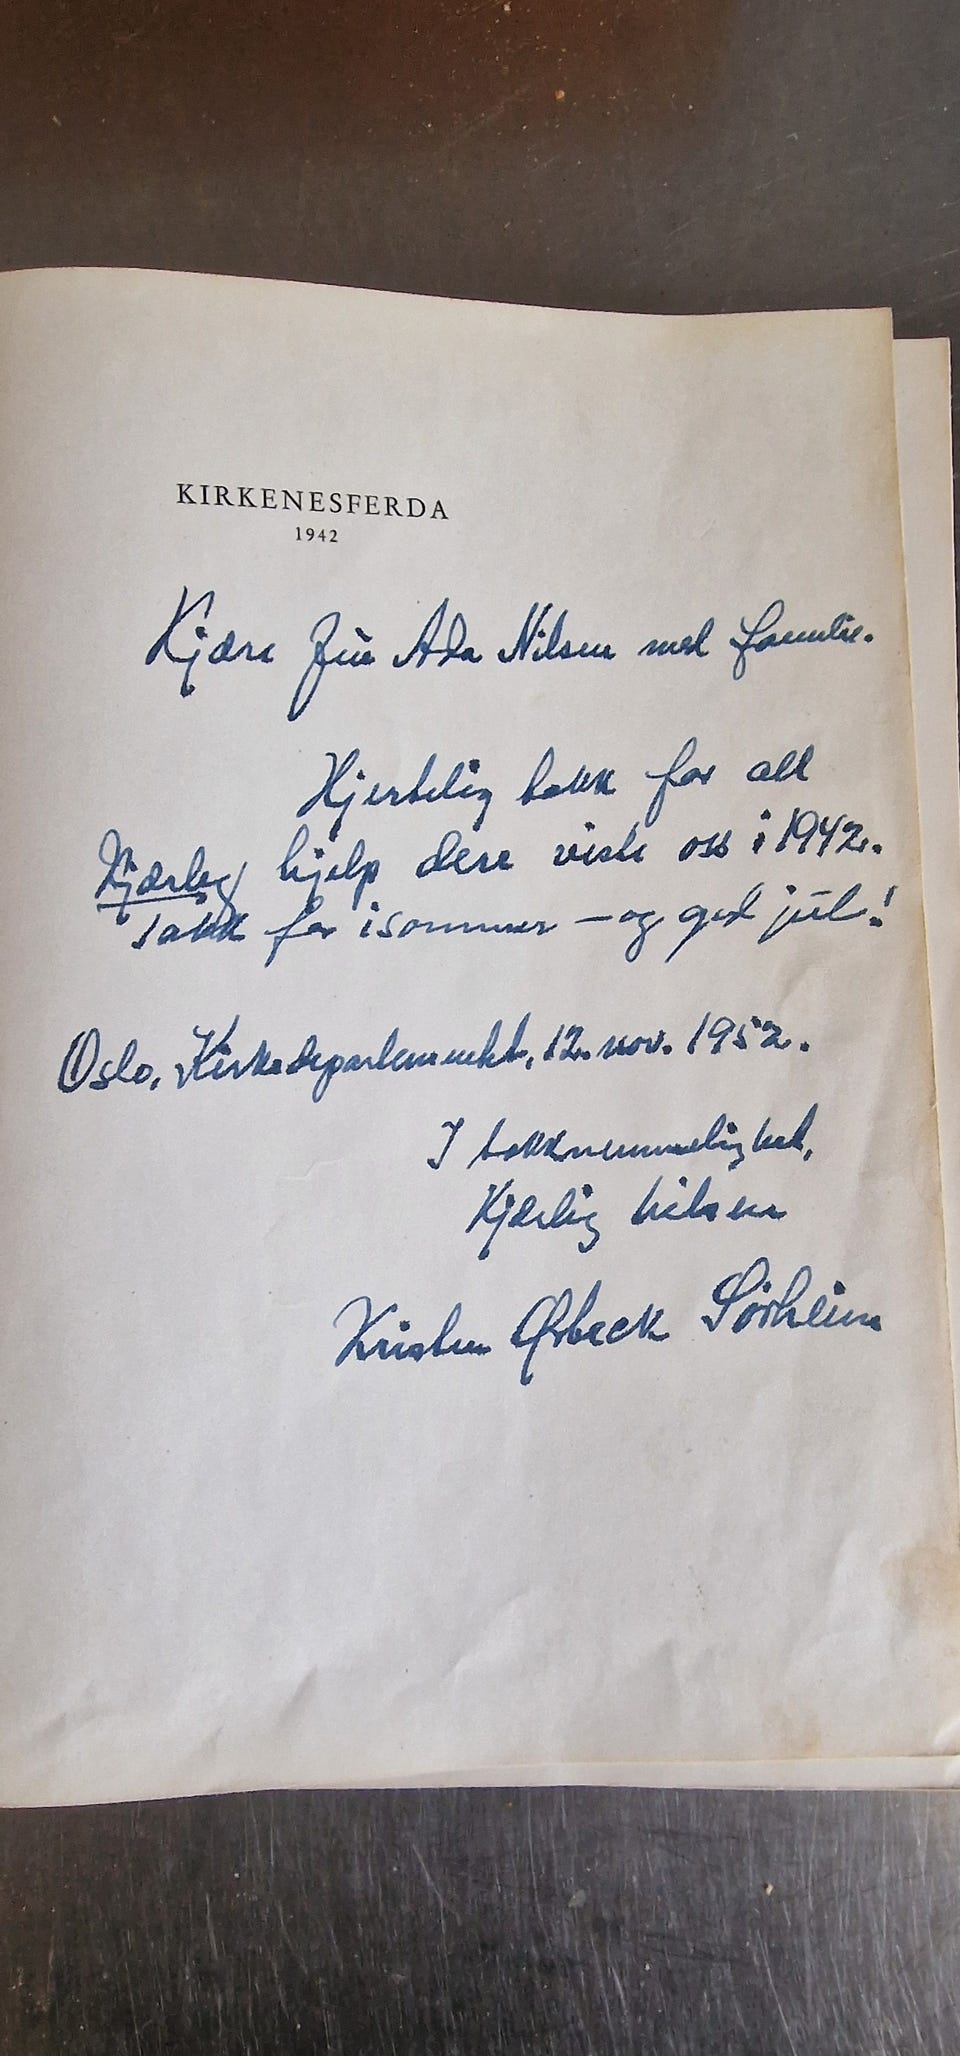 KIRKENESFERDA
1942
Kjære fru Ada Nilsen med familie.
Hjertelig takk for all
kjærleg hjelp dere viste oss i 1942.
Takk for isommer – og god jul!
Oslo, Kirkedepartementet, 12. nov. 1952.
I takknemmelighet,
Kjærlig hilsen
Kristen Ørbeck Sørheim